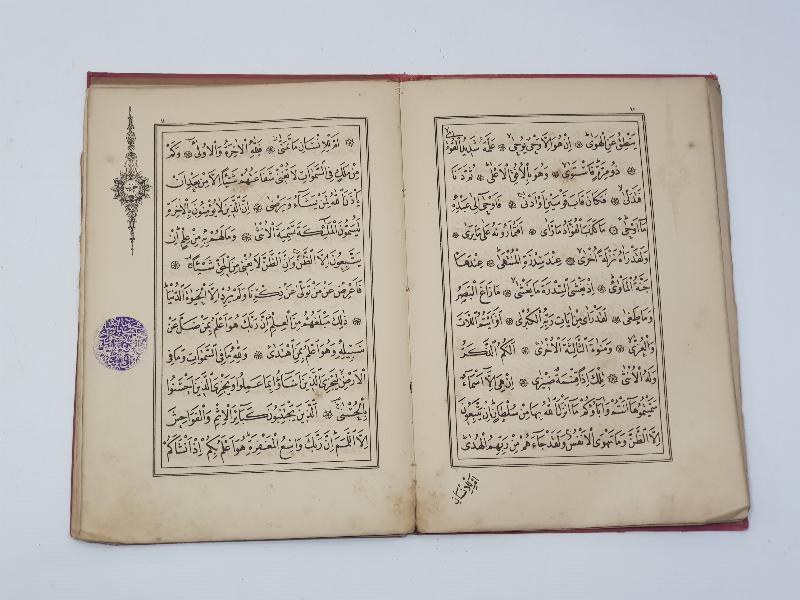 ١٠
يَنْطِقُ عَنِ الْهَوٰى ۞ اِنْ هُوَ اِلَّا وَحْيٌ يُوحٰى ۞ عَلَّمَهُ شَدِيدُ الْقُوٰى
ذُو مِرَّةٍ فَاسْتَوٰى ۞ وَهُوَ بِالْاُفُقِ الْاَعْلٰى ۞ ثُمَّ دَنَا
فَتَدَلّٰى ۞ فَكَانَ قَابَ قَوْسَيْنِ اَوْ اَدْنٰى ۞ فَاَوْحٰى اِلٰى عَبْدِهِ
مَا اَوْحٰى ۞ مَا كَذَبَ الْفُؤَادُ مَا رَاٰى ۞ اَفَتُمَارُونَهُ عَلٰى مَا يَرٰى ۞
وَلَقَدْ رَاٰهُ نَزْلَةً اُخْرٰى ۞ عِنْدَ سِدْرَةِ الْمُنْتَهٰى ۞ عِنْدَهَا
جَنَّةُ الْمَأْوٰى ۞ اِذْ يَغْشَى السِّدْرَةَ مَا يَغْشٰى ۞ مَا زَاغَ الْبَصَرُ
وَمَا طَغٰى ۞ لَقَدْ رَاٰى مِنْ اٰيَاتِ رَبِّهِ الْكُبْرٰى ۞ اَفَرَاَيْتُمُ اللَّاتَ
وَالْعُزّٰى ۞ وَمَنٰوةَ الثَّالِثَةَ الْاُخْرٰى ۞ اَلَكُمُ الذَّكَرُ
وَلَهُ الْاُنْثٰى ۞ تِلْكَ اِذًا قِسْمَةٌ ضِيزٰى ۞ اِنْ هِيَ اِلَّا اَسْمَاءٌ
سَمَّيْتُمُوهَا اَنْتُمْ وَاٰبَاؤُكُمْ مَا اَنْزَلَ اللّٰهُ بِهَا مِنْ سُلْطَانٍ اِنْ يَتَّبِعُونَ
اِلَّا الظَّنَّ وَمَا تَهْوَى الْاَنْفُسُ وَلَقَدْ جَاءَهُمْ مِنْ رَبِّهِمُ الْهُدٰى
اَمْ لِلْاِنْسَانِ
۞ اَمْ لِلْاِنْسَانِ مَا تَمَنّٰى ۞ فَلِلّٰهِ الْاٰخِرَةُ وَالْاُولٰى ۞ وَكَمْ
مِنْ مَلَكٍ فِي السَّمٰوَاتِ لَا تُغْنِي شَفَاعَتُهُمْ شَيْئًا اِلَّا مِنْ بَعْدِ اَنْ
يَأْذَنَ اللّٰهُ لِمَنْ يَشَاءُ وَيَرْضٰى ۞ اِنَّ الَّذِينَ لَا يُؤْمِنُونَ بِالْاٰخِرَةِ
لَيُسَمُّونَ الْمَلٰئِكَةَ تَسْمِيَةَ الْاُنْثٰى ۞ وَمَا لَهُمْ بِهِ مِنْ عِلْمٍ اِنْ
يَتَّبِعُونَ اِلَّا الظَّنَّ وَاِنَّ الظَّنَّ لَا يُغْنِي مِنَ الْحَقِّ شَيْئًا ۞
فَاَعْرِضْ عَنْ مَنْ تَوَلّٰى عَنْ ذِكْرِنَا وَلَمْ يُرِدْ اِلَّا الْحَيٰوةَ الدُّنْيَا
۞ ذٰلِكَ مَبْلَغُهُمْ مِنَ الْعِلْمِ اِنَّ رَبَّكَ هُوَ اَعْلَمُ بِمَنْ ضَلَّ عَنْ
سَبِيلِهِ وَهُوَ اَعْلَمُ بِمَنِ اهْتَدٰى ۞ وَلِلّٰهِ مَا فِي السَّمٰوَاتِ وَمَا فِي
الْاَرْضِ لِيَجْزِيَ الَّذِينَ اَسَاؤُا بِمَا عَمِلُوا وَيَجْزِيَ الَّذِينَ اَحْسَنُوا
بِالْحُسْنٰى ۞ اَلَّذِينَ يَجْتَنِبُونَ كَبَائِرَ الْاِثْمِ وَالْفَوَاحِشَ
اِلَّا اللَّمَمَ اِنَّ رَبَّكَ وَاسِعُ الْمَغْفِرَةِ هُوَ اَعْلَمُ بِكُمْ اِذْ اَنْشَاَكُمْ